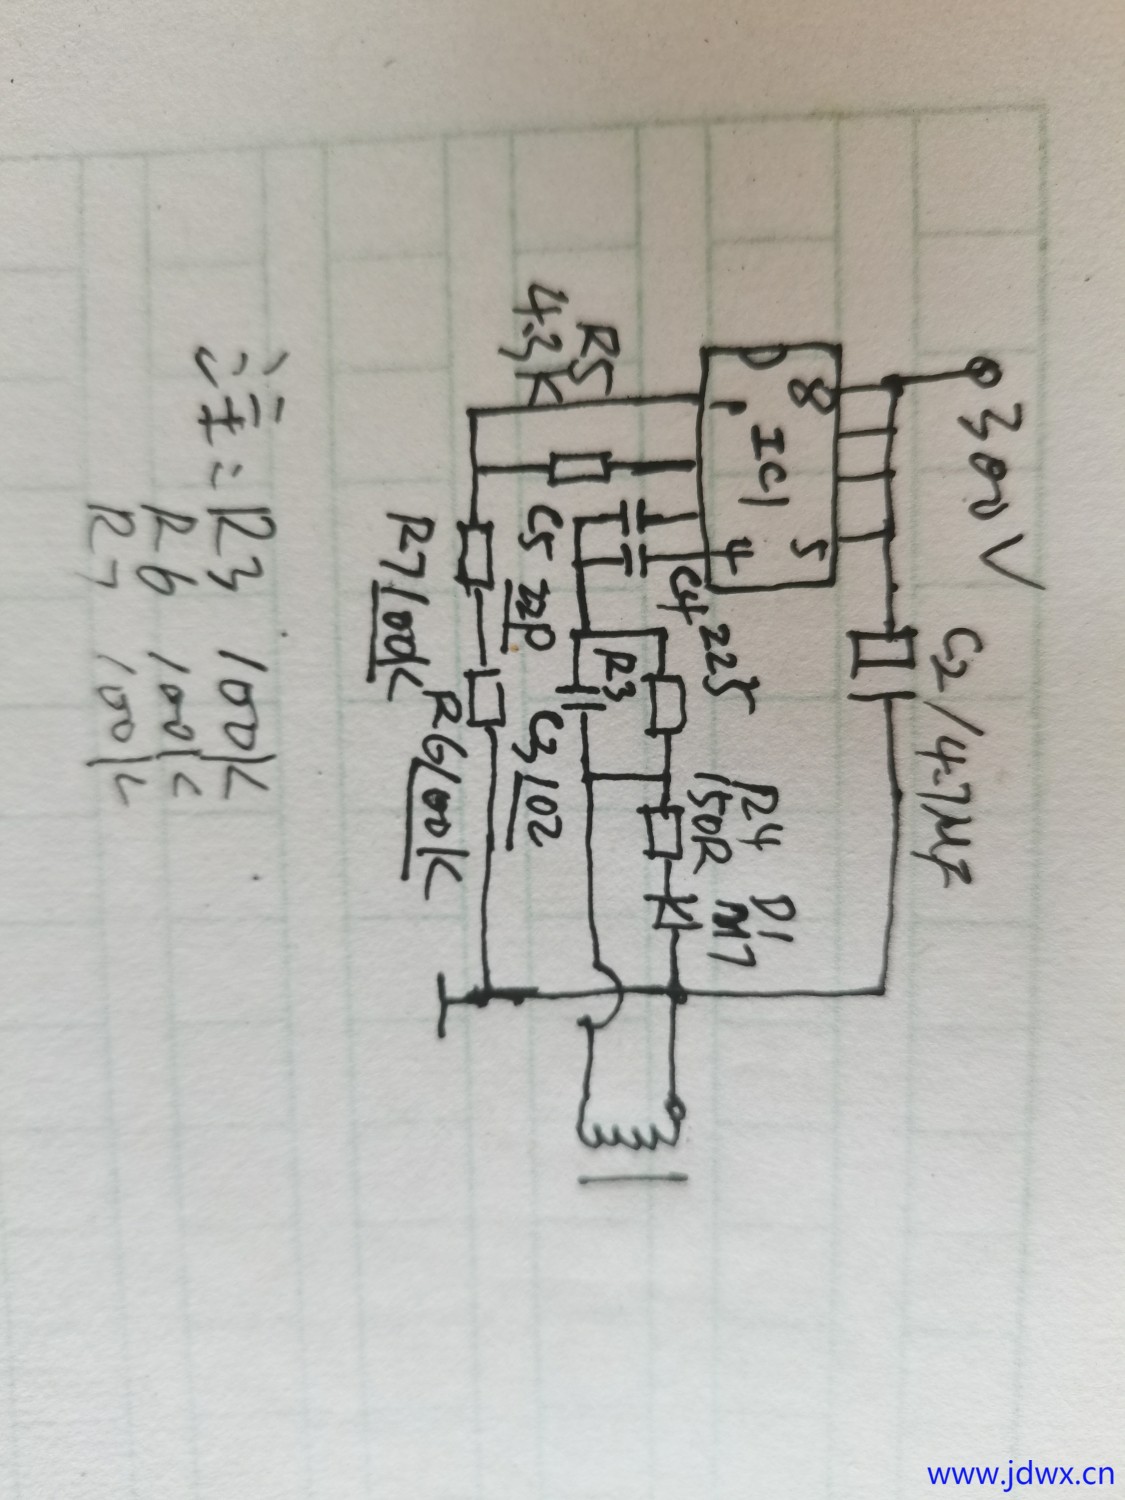 300V
C2/4.7μf
8
5
IC1
1
4
R5
4.3K
C4 225
C5 22P
R3
R4
150R
D1
M7
C3 102
R7 100K
R6 100K
注:R3 100K
R6 100K
R7 100K
www.jdwx.cn